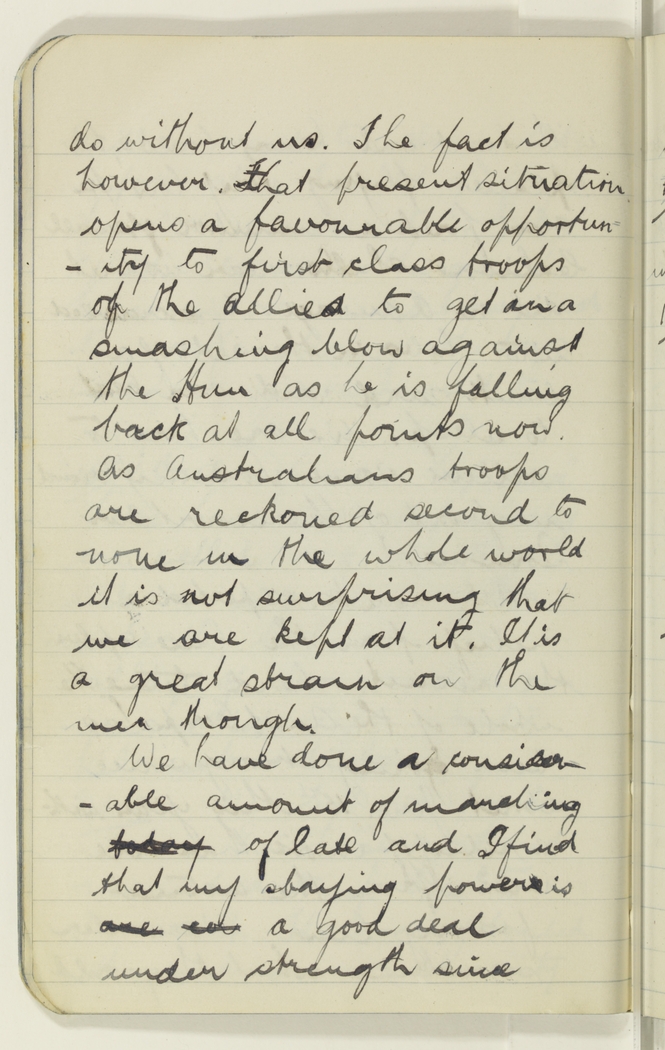 do without us. The fact is
however. that present situation
opens a favourable opportun=
- ity to first class troops
of the allied to get in a
smashing blow against
the Hun as he is falling
back at all points now.
As Australians troops
are reckoned second to
none in the whole world
it is not surprising that
we are kept at it. It is
a great strain on the
men though.
We have done a consider
- able amount of marching
today of late and I find
that my staying power is
are con a good deal
under strength since